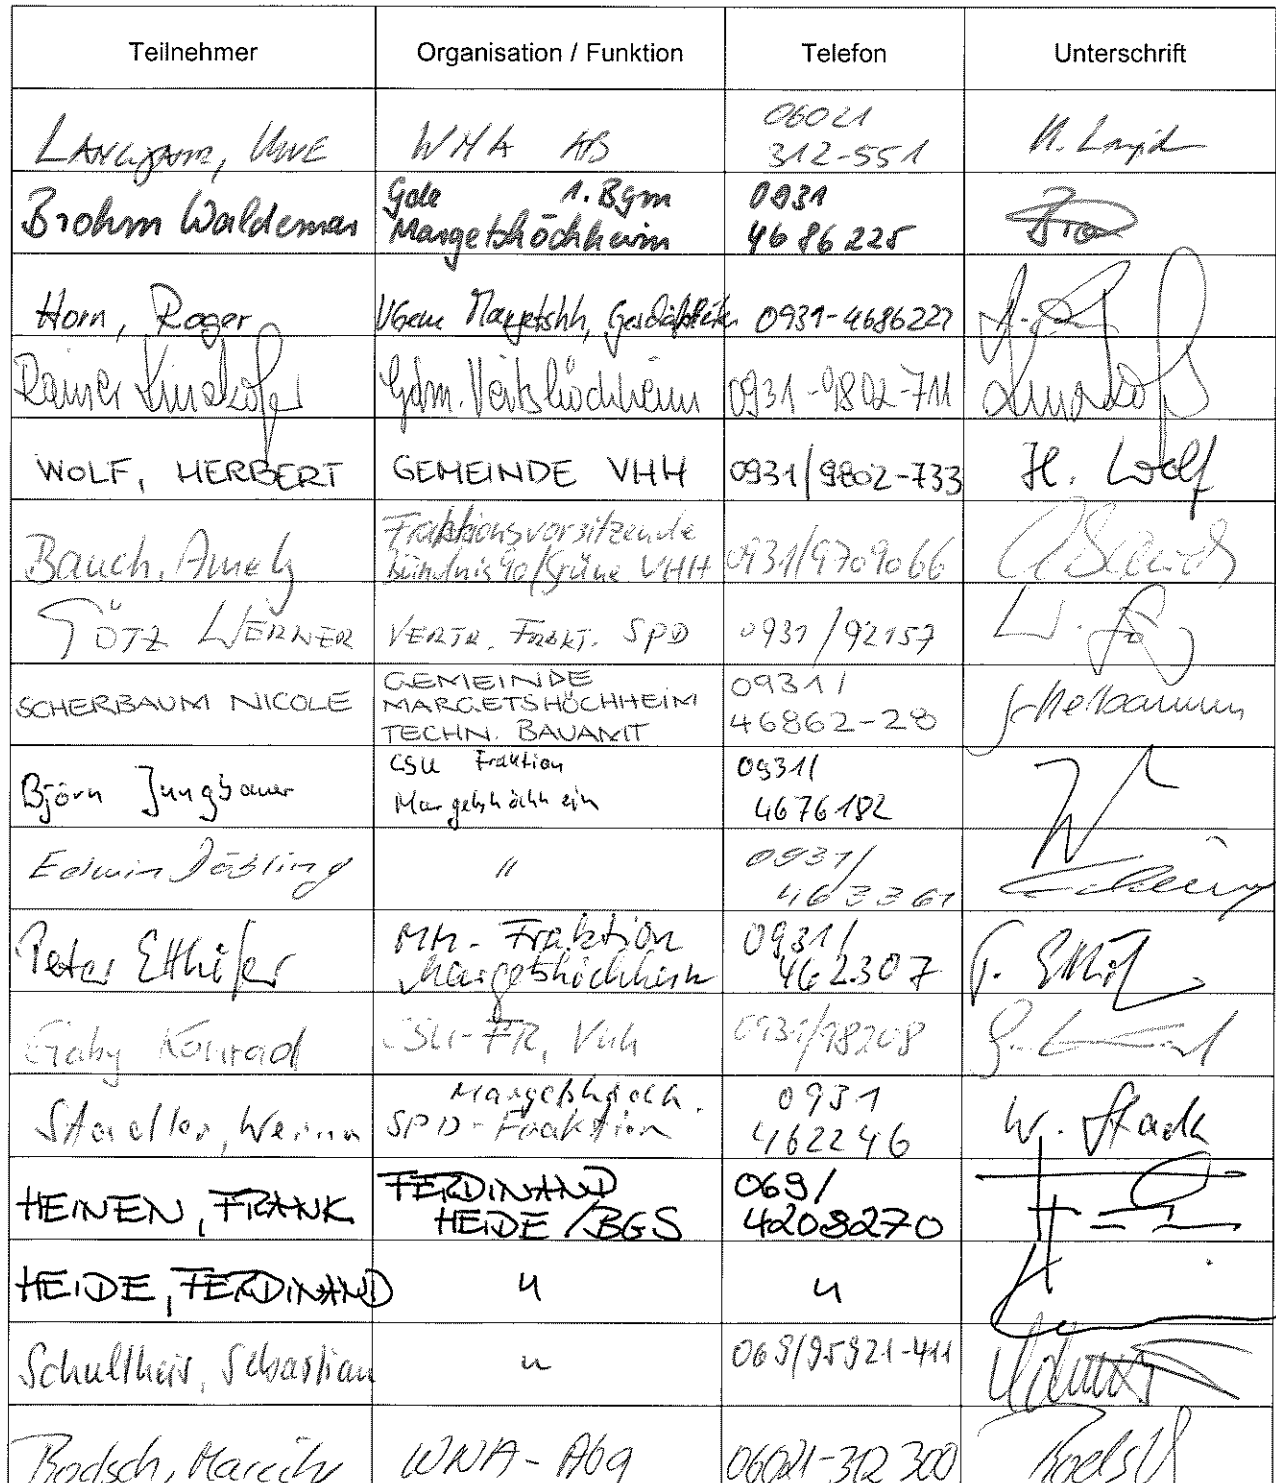 Teilnehmer Organisation / Funktion Telefon Unterschrift
Uwe WNA AB 06021
312-551
Brohm Waldemar Gde 1. Bgm 0931
Margetshöchheim 4686225
Horn, Roger VGem Margetshh, 0931-4686227
Rainer Kinzkofer Gdm. Veitshöchheim 0931-9802-711
WOLF, HERBERT GEMEINDE VHH 0931/9802-733 H. Wolf
Bauch, Fraktionsvorsitzende
Bündnis 90/Grüne VHH 0931/9709066
GÖTZ WERNER VERTR. FRAKT. SPD 0931/92157
SCHERBAUM NICOLE GEMEINDE
MARGETSHÖCHHEIM
TECHN. BAUAMT 0931/
46862-28 Scherbaum
Björn Jungbauer CSU Fraktion
Margetshöchheim 0931/
4676182
Edwin " 0931/
463361
Peter Etthöfer MM-Fraktion
Margetshöchheim 0931/
462307
Gaby Konrad CSU-FR, Vhh 0931/98208
Werner Margetshöchh.
SPD-Fraktion 0931
462246
HEINEN, FRANK FERDINAND
HEIDE/BGS 069/
4208270
HEIDE, FERDINAND " "
Schultheis, Sebastian " 069/95921-411
WNA-Abg 06021-312 300